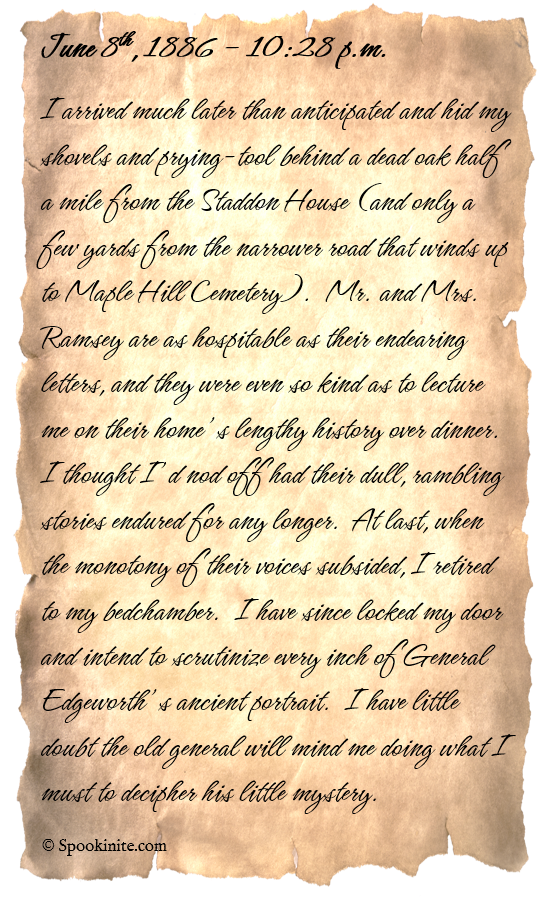 June 8th, 1886 – 10:28 p.m.
I arrived much later than anticipated and hid my
shovels and prying-tool behind a dead oak half
a mile from the Staddon House (and only a
few yards from the narrower road that winds up
to Maple Hill Cemetery).  Mr. and Mrs.
Ramsey are as hospitable as their endearing
letters, and they were even so kind as to lecture
me on their home's lengthy history over dinner.
I thought I'd nod off had their dull, rambling
stories endured for any longer.  At last, when
the monotony of their voices subsided, I retired
to my bedchamber.  I have since locked my door
and intend to scrutinize every inch of General
Edgeworth's ancient portrait.  I have little
doubt the old general will mind me doing what I
must to decipher his little mystery.
© Spookinite.com